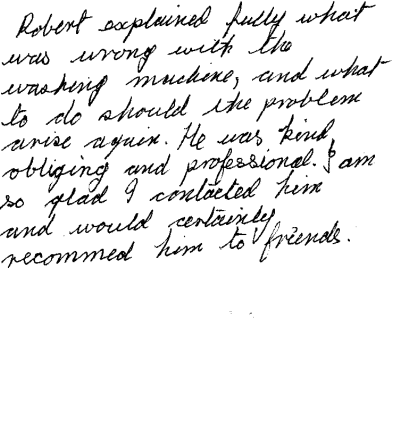 Robert explained fully what
was wrong with the
washing machine, and what
to do should the problem
arise again. He was kind,
obliging and professional. I am
so glad I contacted him
and would certainly
recommed him to friends.